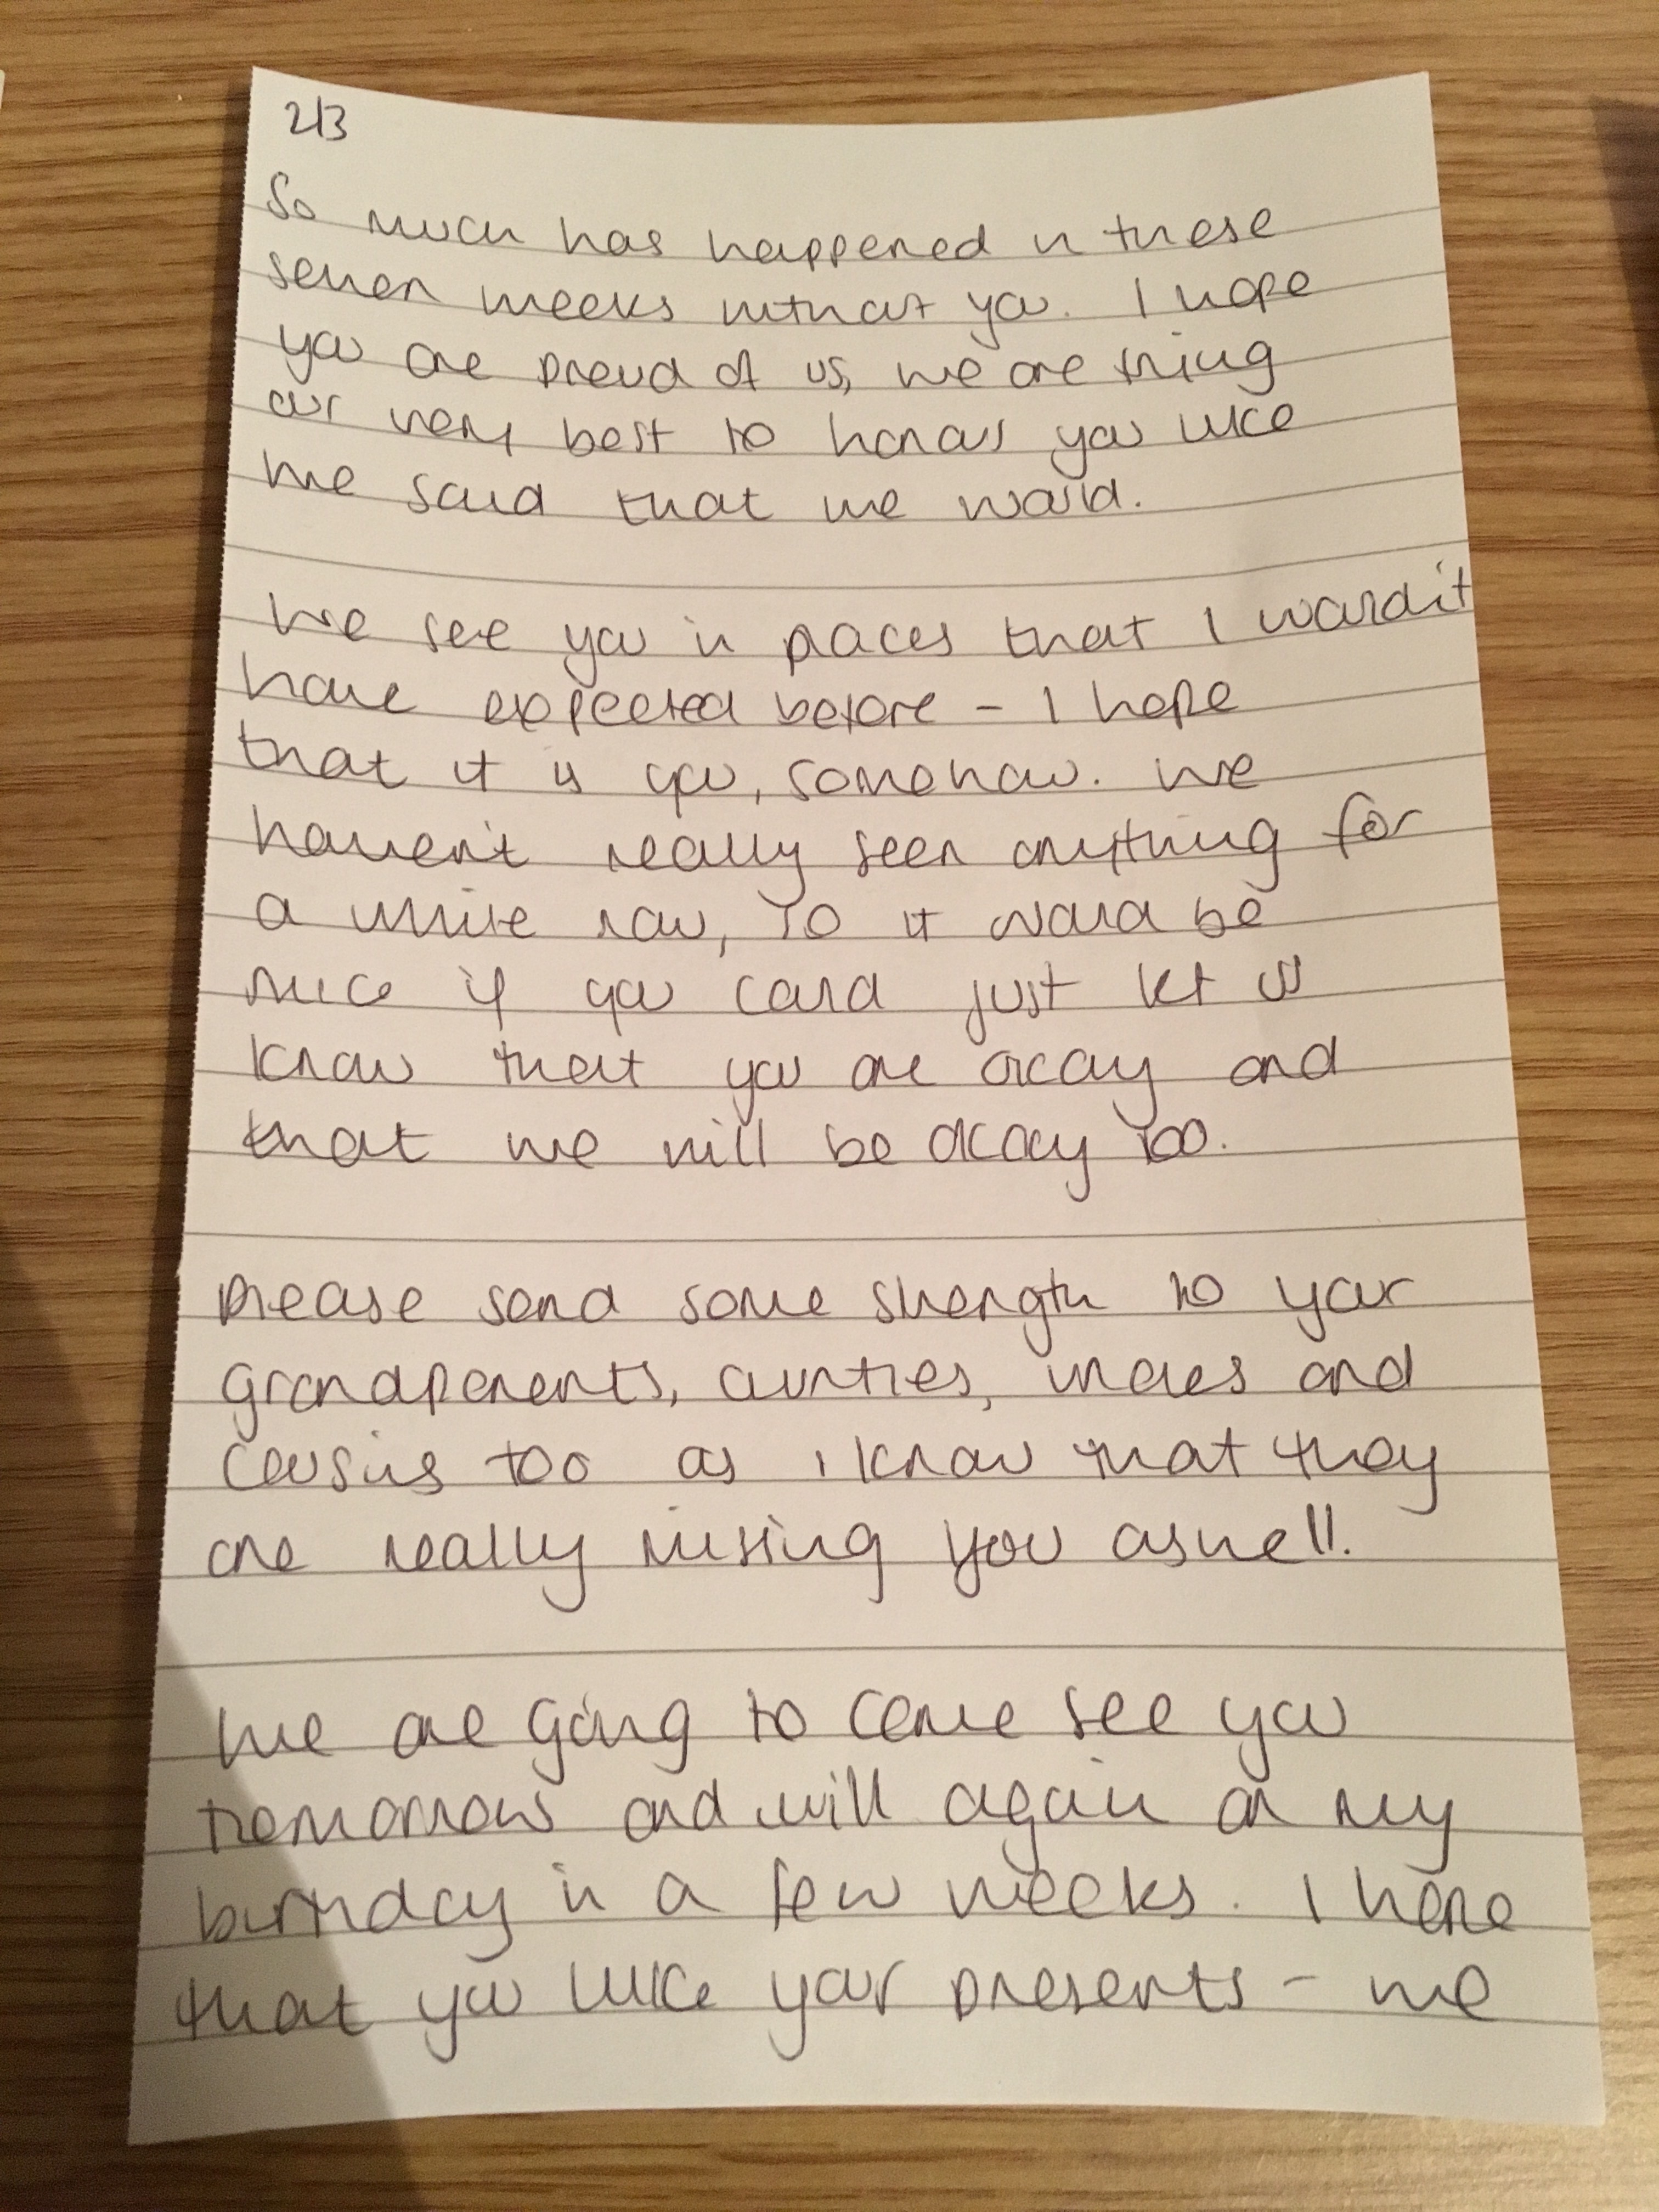 2/3
So much has happened in these
seven weeks without you. I hope
you are proud of us, we are trying
our very best to honour you like
we said that we would.
We see you in places that I wouldn't
have expected before - I hope
that it is you, somehow. We
haven't really seen anything for
a while now, so it would be
nice if you could just let us
know that you are okay and
that we will be okay too.
Please send some strength to your
grandparents, aunties, uncles and
cousins too as I know that they
are really missing you aswell.
We are going to come see you
tomorrow and will again on my
birthday in a few weeks. I hope
that you like your presents - we